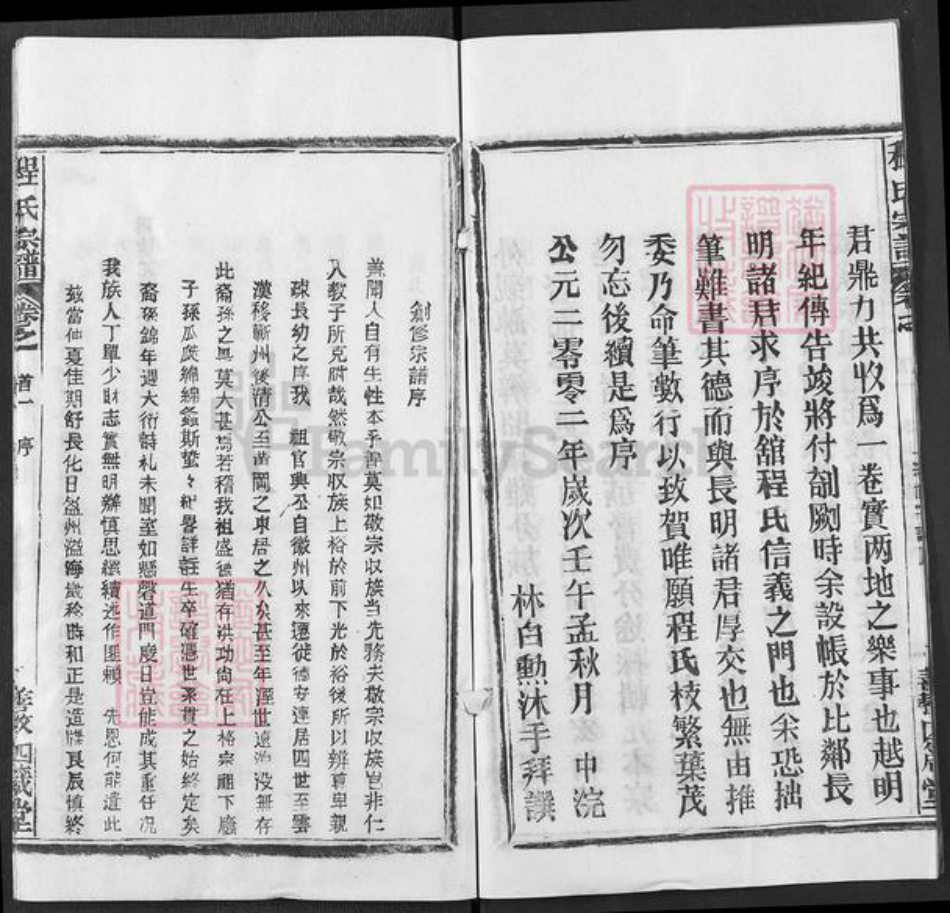 君鼎力共收爲一卷實两地之樂事也越明
年紀傳告竣將付剞劂時余設帳於比鄰長
明諸君求序於舘程氏信義之門也余恐拙
筆難書其德而與長明諸君厚交也無由推
委乃命筆數行以致賀唯願程氏枝繁葉茂
勿忘後續是爲序
公元二零零二年歲次壬午孟秋月 中浣
林白勳沐手拜譔
創修宗譜序
盖聞人自有生性本乎善莫如敬宗収族当先務夫敬宗収族豈非仁
人教子所克疏哉然敬宗収族上裕於前下光於裕後所以辨尊卑親
疎長幼之序我 祖官興公自徽州以來遷徙德安連居四世至雲
漢移蘄州後清公至黄岡之東居之久矣甚至年湮世遠治没無存
此裔孫之辱莫大甚焉若稽我祖盛德猶存洪功尙在上格宗祖下應
子孫瓜瓞綿綿螽斯蟄々紀畧詳註生卒確憑世系貫之始終定矣
裔孫錦年週大衍斟札未聞室如懸磬道門度日豈能成其重任况
我族人丁單少財志實無明辦慎思繼續述作匪賴 先恩何能遺此
兹當仲夏佳期舒長化日盈州溢海歲稔時和正是造牒良辰慎終
程氏宗譜 卷之一 首一 序 四箴堂